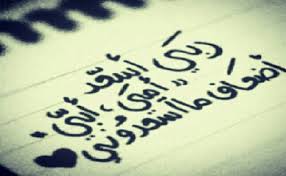 ربي أسعد
أمي ،، أبي
أضعاف ما أسعدوني